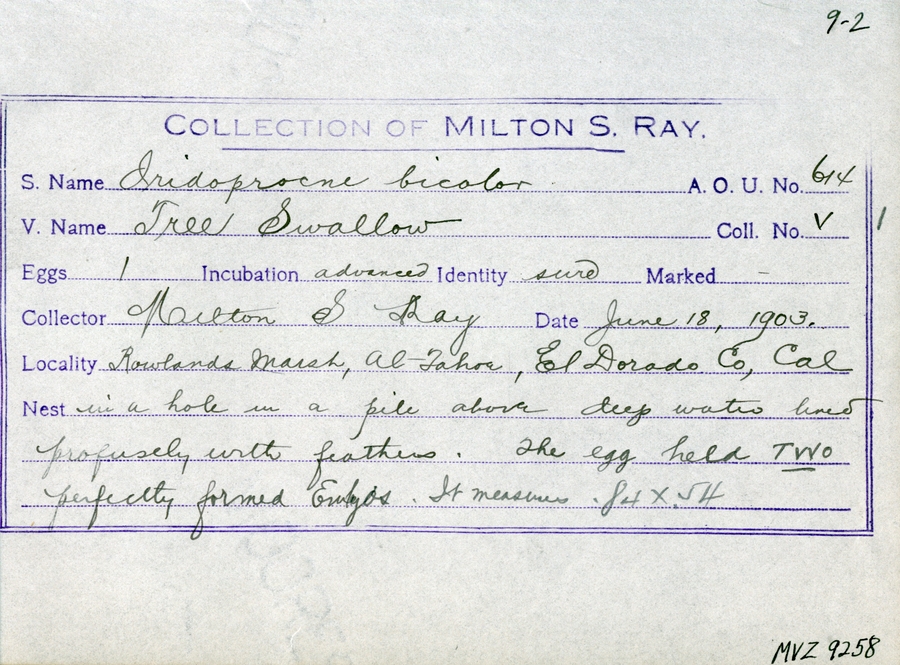 9-2
COLLECTION OF MILTON S. RAY.
S. Name Iridoprocne bicolor A. O. U. No. 614
V. Name Tree Swallow Coll. No. V 1
Eggs 1 Incubation advanced Identity sure Marked -
Collector Milton S Ray Date June 18, 1903.
Locality Rowlands Marsh, Al-Tahoe, El Dorado Co, Cal
Nest in a hole in a pile above deep water lined
profusely with feathers. The egg held TWO
perfectly formed Embyos. It measures .84 X .54
MVZ 9258